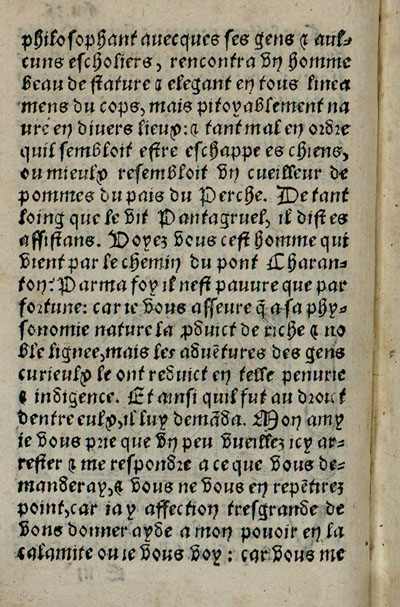 philosophant auecques ses gens & aul-
cuns escholiers, rencontra vn homme
beau de stature & elegant en tous linea
mens du cops, mais pitoyablement na
ure en diuers lieux: & tant mal en ordre
quil sembloit estre eschappe es chiens,
ou mieulx resembloit vn cueilleur de
pommes du pais du Perche. De tant
loing que le vit Pantagruel, il dist es
assistans. Voyez vous cest homme qui
vient par le chemin du pont Charan-
ton? Par ma foy il nest pauure que par
fortune: car ie vous asseure q̃ a sa phy-
sonomie nature la pduict de riche & no
ble lignee, mais les aduẽtures des gens
curieulx le ont reduict en telle penurie
& indigence. Et ainsi quil fut au droict
dentre eulx, il luy demãda. Mon amy
ie vous prie que vn peu vueillez icy ar-
rester & me respondre a ce que vous de-
manderay, & vous ne vous en repẽtirez
point, car iay affection tresgrande de
vous donner ayde a mon pouoir en la
calamite ou ie vous voy: car vous me